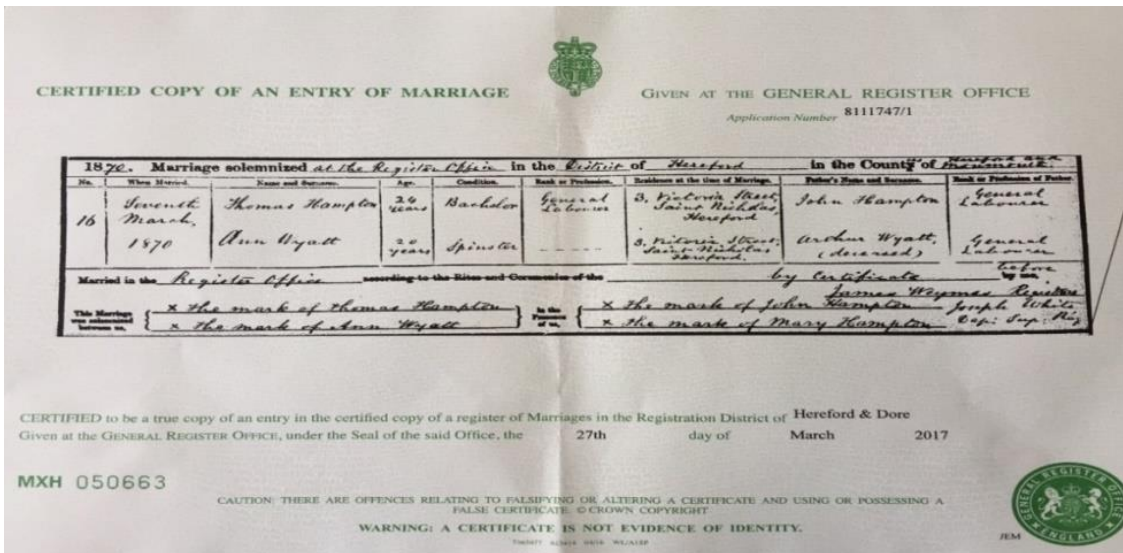 CERTIFIED COPY OF AN ENTRY OF MARRIAGE
GIVEN AT THE GENERAL REGISTER OFFICE
Application Number 8111747/1
1870. Marriage solemnized at the Register Office in the District of Hereford in the County of Hereford and Monmouth.
No. When Married. Name and Surname. Age. Condition. Rank or Profession. Residence at the time of Marriage. Father's Name and Surname. Rank or Profession of Father.
16 Seventh March, 1870 Thomas Hampton 24 years Bachelor General Labourer 3, Victoria Street, Saint Nicholas, Hereford John Hampton General Labourer
Ann Wyatt 20 years Spinster - - - - - 3, Victoria Street, Saint Nicholas Hereford. Arthur Wyatt, (deceased) General Labourer
Married in the Register Office according to the Rites and Ceremonies of the by Certificate before by me,
This Marriage was solemnized between us, x the mark of Thomas Hampton in the Presence of us, x the mark of John Hampton James Registrar
x the mark of Ann Wyatt x the mark of Mary Hampton Joseph White Sup. Reg
CERTIFIED to be a true copy of an entry in the certified copy of a register of Marriages in the Registration District of Hereford & Dore
Given at the GENERAL REGISTER OFFICE, under the Seal of the said Office, the 27th day of March 2017
MXH 050663
CAUTION: THERE ARE OFFENCES RELATING TO FALSIFYING OR ALTERING A CERTIFICATE AND USING OR POSSESSING A
FALSE CERTIFICATE. © CROWN COPYRIGHT
WARNING: A CERTIFICATE IS NOT EVIDENCE OF IDENTITY.
JEM
GENERAL REGISTER OFFICE
ENGLAND